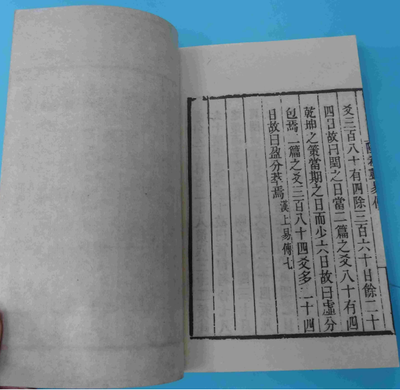 陸希聲易傳
爻三百八十有四除三百六十日餘二十
四日故曰閏之日當二篇之爻八十有四
乾坤之策當期之日而少六日故曰虛分
包焉二篇之爻三百八十四爻多二十四
日故曰盈分萃焉漢上易傳七